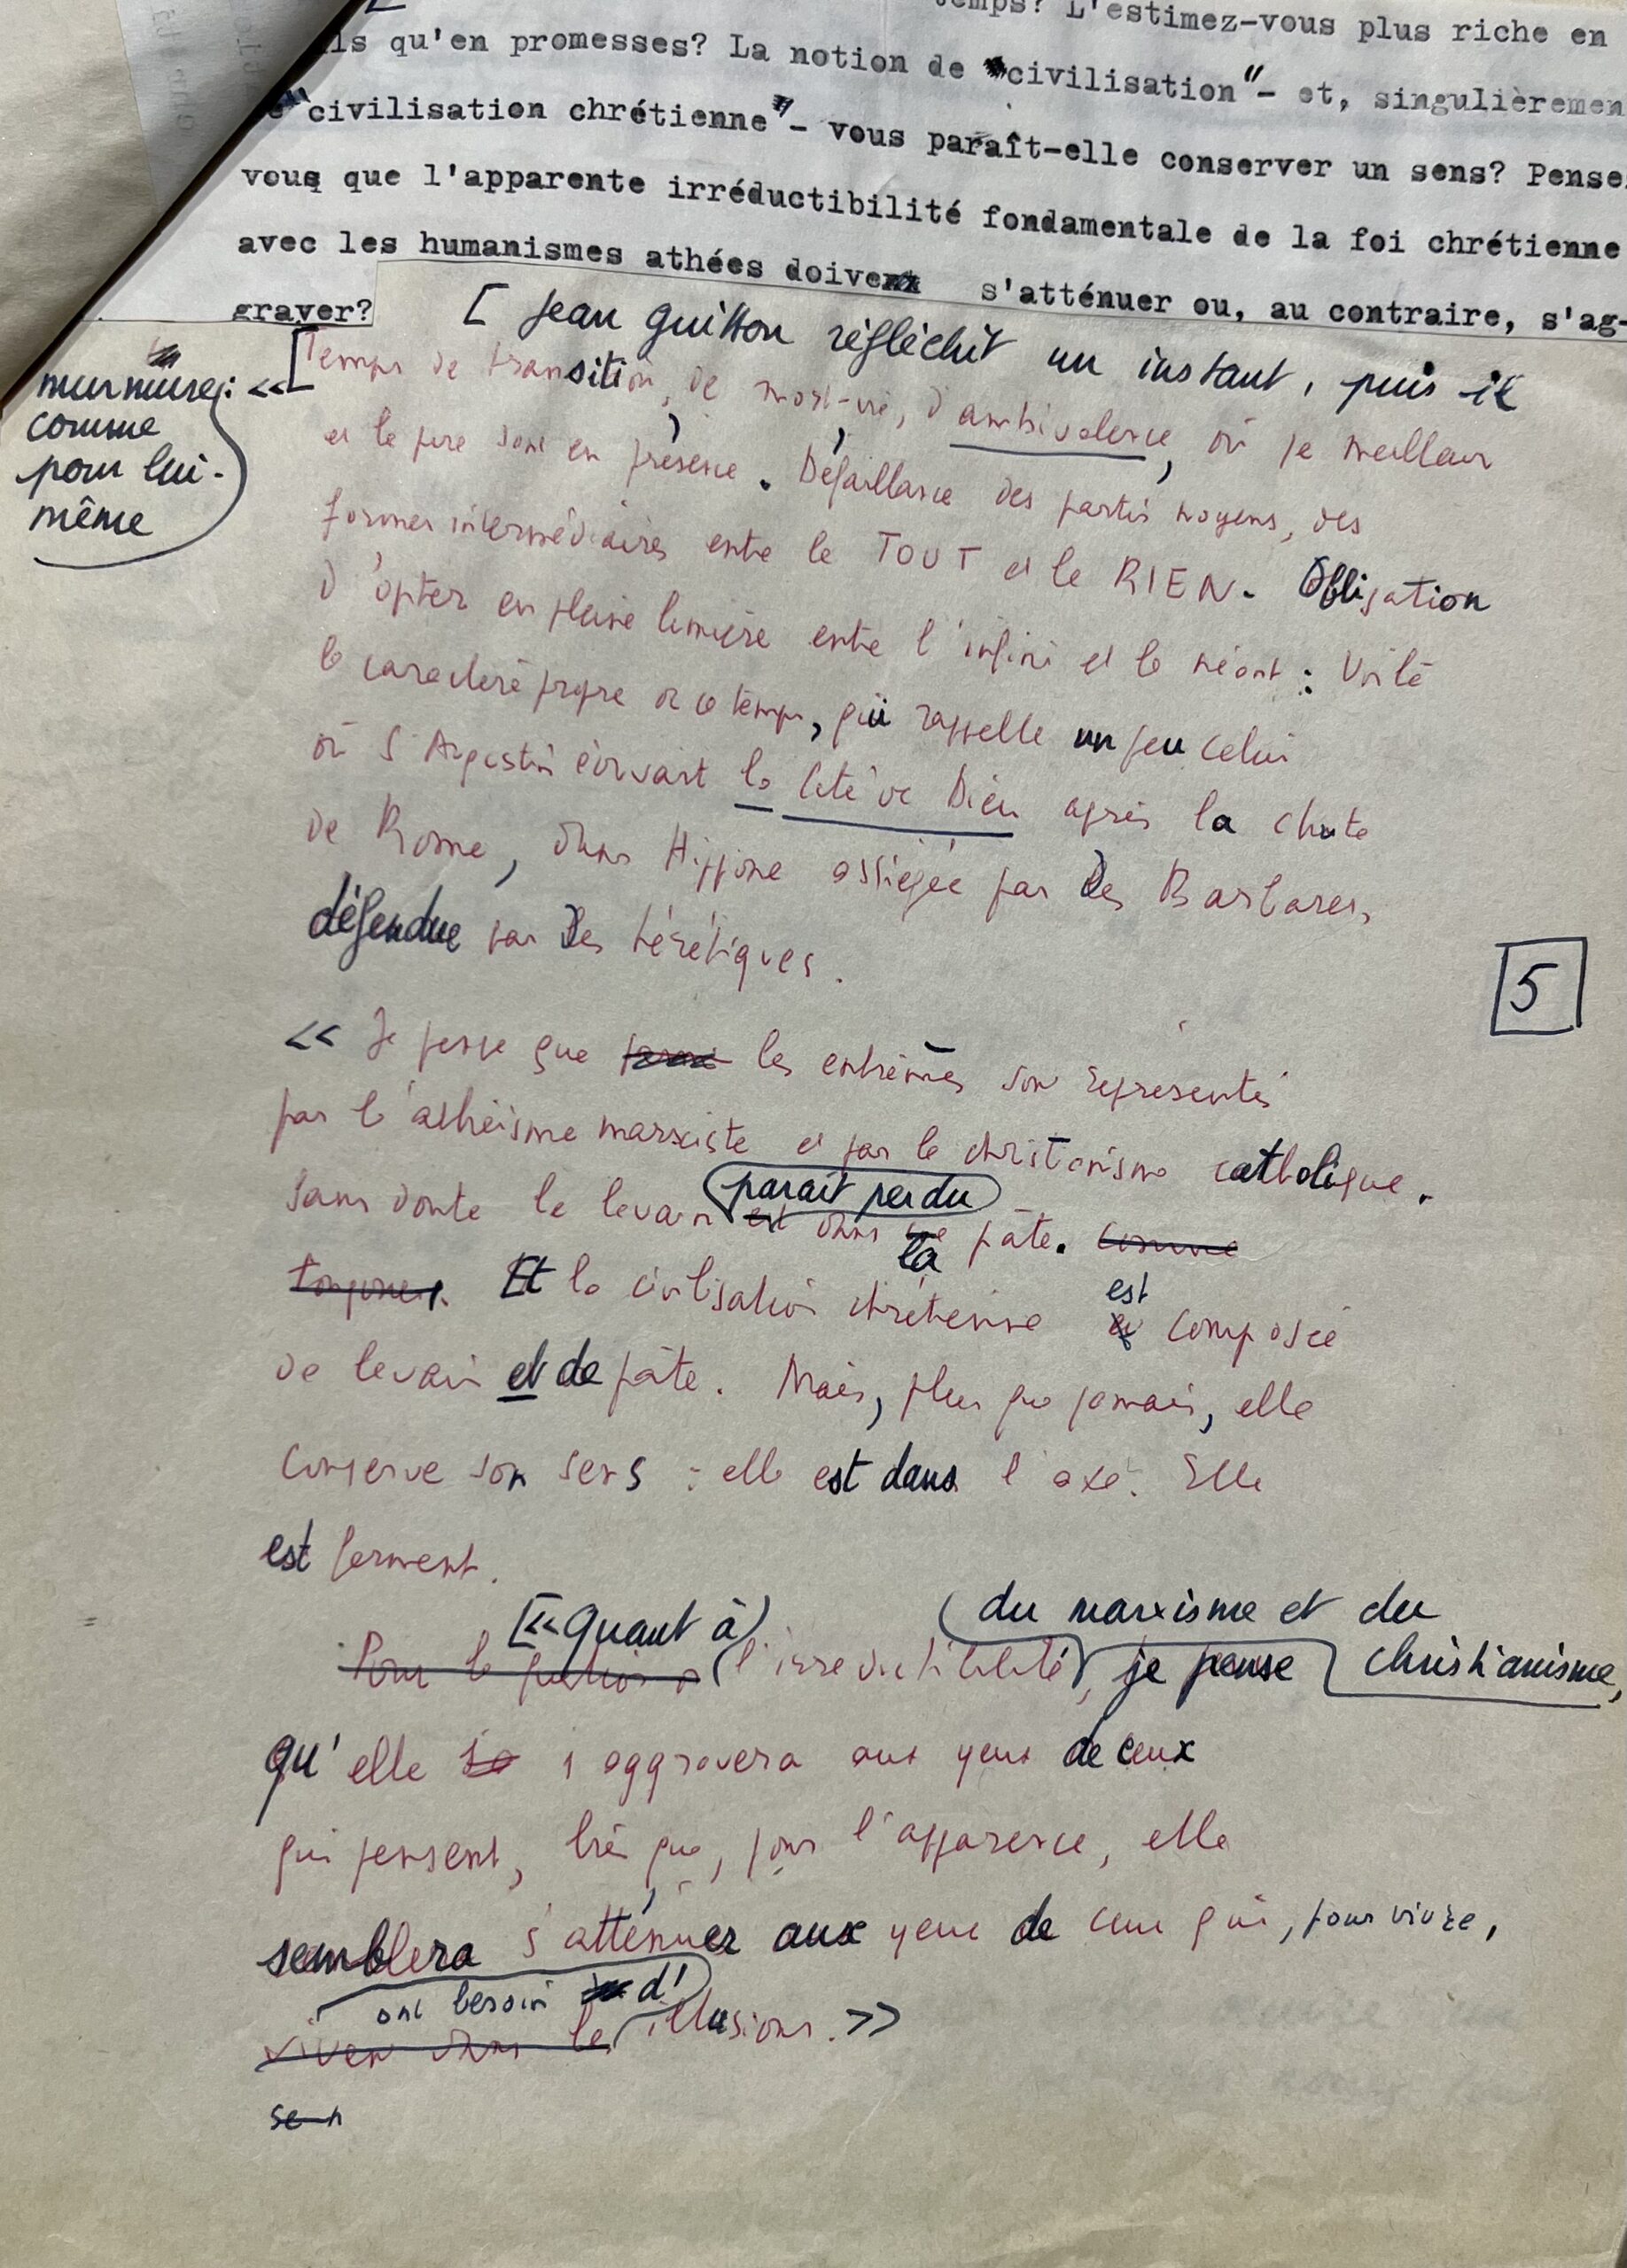 temps? L'estimez-vous plus riche en
ls qu'en promesses? La notion de "civilisation"- et, singulièremen
"civilisation chrétienne"- vous paraît-elle conserver un sens? Pense
vous que l'apparente irréductibilité fondamentale de la foi chrétienne
avec les humanismes athées doive s'atténuer ou, au contraire, s'ag-
graver?
[ Jean Guitton réfléchit un instant, puis il
murmure: <<
comme
pour lui-
même
[Temps de transition, de mort-vie, d'ambivalence, où le meilleur
et le pire sont en présence. Défaillance des partis moyens, des
formes intermédiaires entre le TOUT et le RIEN. Obligation
d'opter en pleine lumière entre l'infini et le néant : Voilà
le caractère propre de ce temps, qui rappelle un peu celui
où S Augustin écrivait la Cité de Dieu après la chute
de Rome, dans Hippone assiégée par des Barbares,
défendue par des hérétiques.
5
<< Je pense que les extrêmes son représentés
par l'athéisme marxiste et par le christianisme catholique.
Sans doute le levain paraît perdu dans la pâte. comme
toujours. Et la civilisation chrétienne est composée
de levain et de pâte. Mais, plus que jamais, elle
conserve son sens : elle est dans l'axe. Elle
est ferment.
[<< Quant à du marxisme et du
Pour la question de l'irréductibilité, je pense christianisme,
qu'elle s'aggravera aux yeux de ceux
qui pensent, bien que, pour l'apparence, elle
semblera s'atténuer aux yeux de ceux qui, pour vivre,
ont besoin d'
vivent dans les illusions. >>
sen